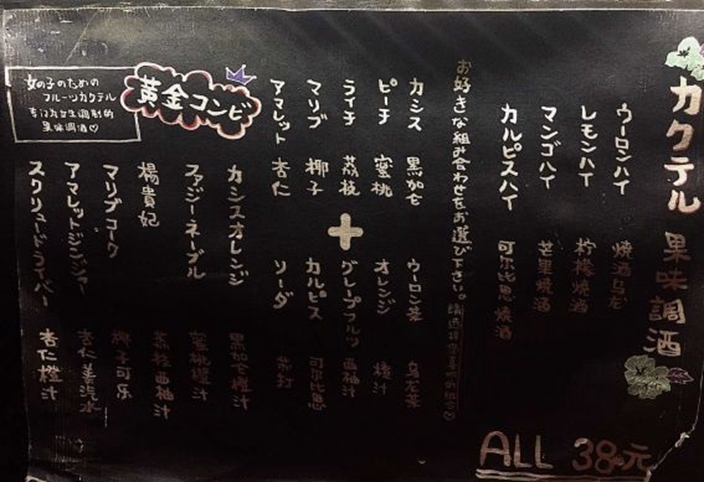 カクテル 果味調酒
ウーロンハイ 焼酒烏龙
レモンハイ 柠檬焼酒
マンゴハイ 芒果焼酒
カルピスハイ 可尔必思焼酒
お好きな組み合わせをお選び下さい。
カシス 黒加仑
ピーチ 蜜桃
ライチ 荔枝
マリブ 椰子
アマレット 杏仁
+
ウーロン茶 烏龙茶
オレンジ 橙汁
グレープフルツ 西柚汁
カルピス 可尔必思
ソーダ 苏打
黄金コンビ
女の子のための
フルーツカクテル
专门为女生調制的
果味調酒♡
カシスオレンジ 黒加仑橙汁
ファジーネーブル 蜜桃橙汁
楊貴妃 荔枝西柚汁
マリブコーク 椰子可乐
アマレットジンジャー 杏仁姜汽水
スクリュードライバー 杏仁橙汁
ALL 38元